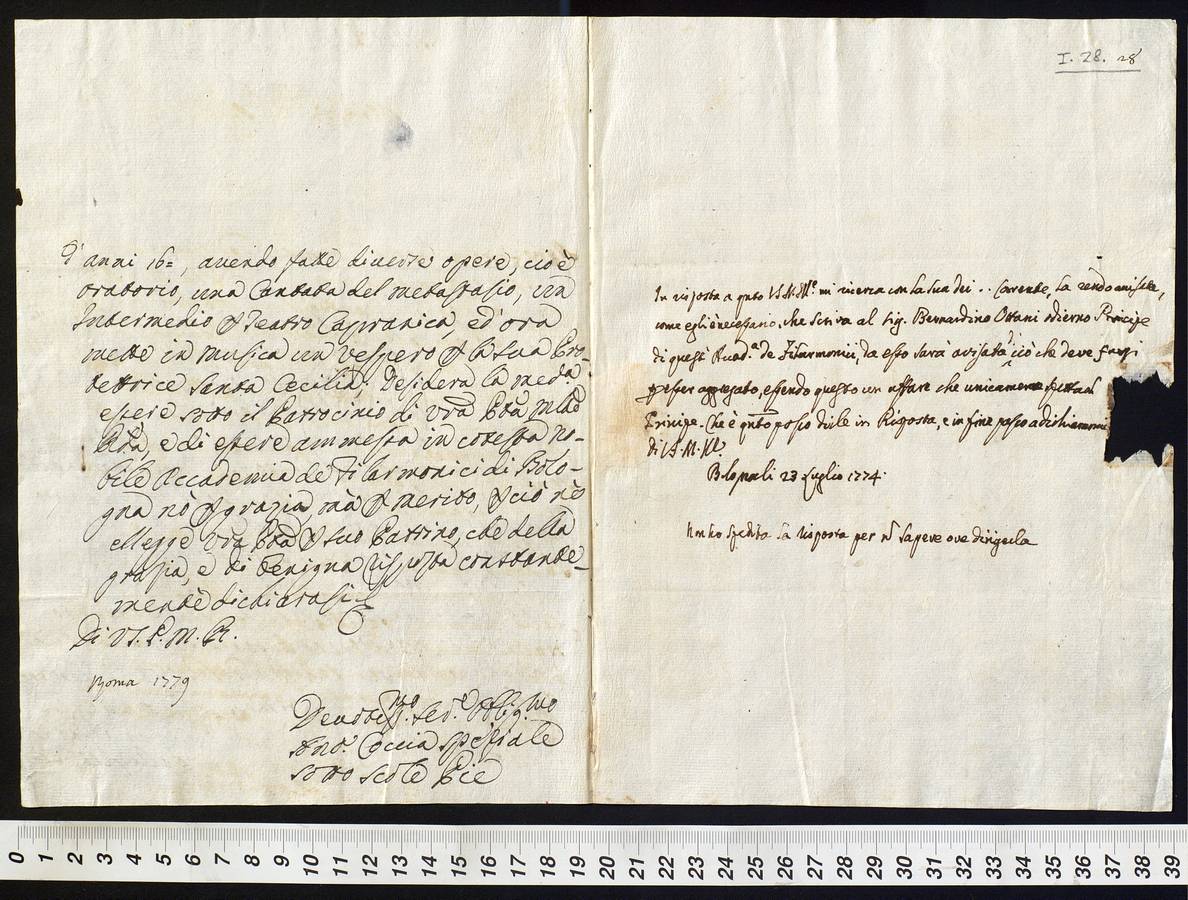 d'anni 16=, avendo fatte diverse opere, cioè
oratorio, una Cantata del metastasio, un
Intermedio p Teatro Capranica, ed'ora
mette in musica un vespero p la sua Pro-
tettrice Santa Cecilia. Desidera la med.a
essere sotto il Patrocinio di
e di essere ammessa in cotesta no-
bile Accademia de Filarmonici di Bolo-
gna nò p grazia, mà p merito, p ciò
elegge p suo Patrino, che della
grazia, e di benigna risposta constante-
mente dichiarasi
Di V.S.P.M.R.
Roma 1779
Devotis.mo Ser.e Obblig.mo
Ant.o Coccia speziale
sotto scole Pie
I. 28. 28
In risposta a qnto V.S.M.Ill.e mi ricerca con la sua dei .. Corrente, la rendo
come egli è necessario, che scriva al Sig. Bernardino Ottani odierno Principe
di questi Accad.a de Filarmonici, da esso sarà avisata di ciò che deve farsi
p esser aggregato, essendo questo un affare che unicamente spetta al
Principe. Che è qnto posso dirle in Risposta, e in fine passo a dichiararmi
di V.S.M.Ill.
Bologna li 23 Luglio 1774.
Non ho spedita la risposta per ñ sapere ove dirigerla
0 1 2 3 4 5 6 7 8 9 10 11 12 13 14 15 16 17 18 19 20 21 22 23 24 25 26 27 28 29 30 31 32 33 34 35 36 37 38 39